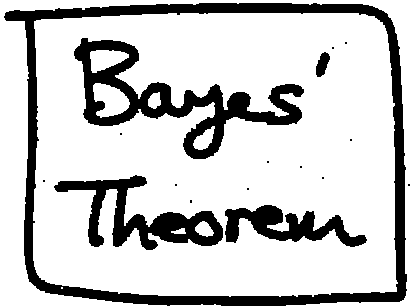 Bayes'
Theorem